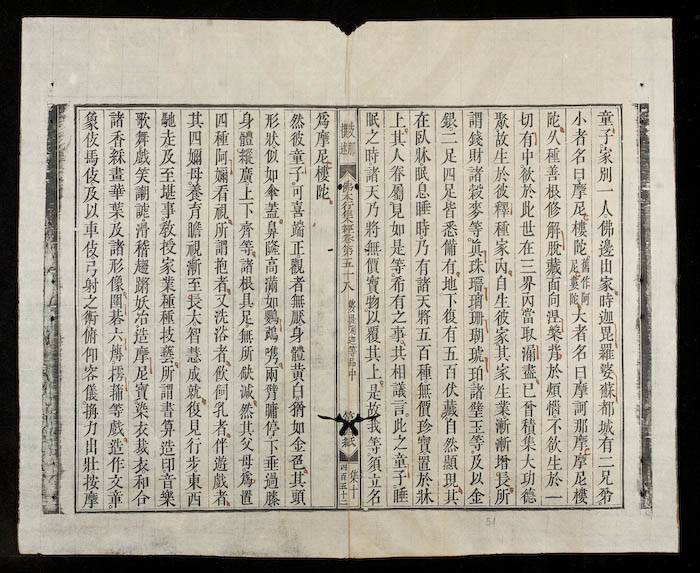 童子家別一人佛邊出家時迦毘羅婆蘇都城有二兄弟
小者名曰摩尼樓陀舊作阿尼婁陀大者名曰摩訶那摩摩尼樓
陀久種善根修解脫藏面向涅槃背於煩惱不欲生於一
切有中欲於此世在三界內當取漏盡已曾積集大功德
聚故生於彼釋種家內自生彼家其家生業漸漸增長所
謂錢財諸穀麥等真珠瑠璃珊瑚琥珀諸璧玉等及以金
銀二足四足皆悉備有地下復有五百伏藏自然顯現其
在臥牀眠息睡時乃有諸天將五百種無價珍寶置於牀
上其人眷屬見如是等希有之事共相議言此之童子睡
眠之時諸天乃將無價寶物以覆其上是故我等須立名
佛本行集經卷第五十八 婆提唎迦等品中 第 紙 集十 四百五十二
為摩尼樓陀
然彼童子可喜端正觀者無厭身體黃白猶如金色其頭
形狀似如傘蓋鼻隆高滿如鸚鵡嘴兩臂牗停下垂過膝
身體縱廣上下齊等諸根具足無所缺減然其父母為置
四種阿嬭看視所謂抱者又洗浴者飲伺乳者伴遊戲者
其四嬭母養育瞻視漸至長大智慧成就復見行步東西
馳走及至堪事教授家業種種技藝所謂書算造印音樂
歌舞戲笑謿謔滑稽趨蹡妖冶造摩尼寶染衣裁衣和合
諸香綵畫華葉及諸形像圍碁六博摴蒱等戲造作文章
象伎馬伎及以車伎弓射之術俯仰容儀捔力出壯按摩
51